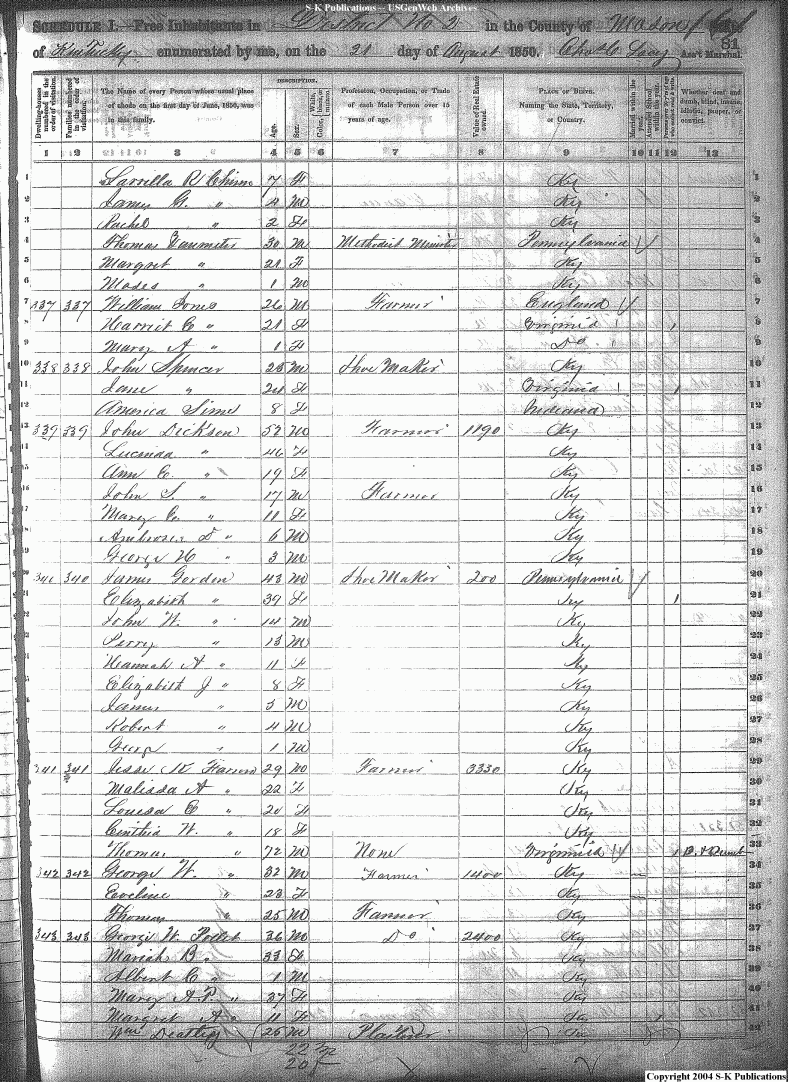 S-K Publications – USGenWeb Archives
SCHEDULE I.—Free Inhabitants in District No 2 in the County of Mason
of Kentucky enumerated by me, on the 21 day of August 1850. Ass't Marshal.
81
Dwelling-houses numbered in the order of visitation.
Families numbered in the order of visitation.
The Name of every Person whose usual place of abode on the first day of June, 1850, was in this family.
DESCRIPTION.
Age.
Sex.
Profession, Occupation, or Trade of each Male Person over 15 years of age.
Value of Real Estate owned.
PLACE OF BIRTH.
Naming the State, Territory, or Country.
Married within the year.
Whether deaf and dumb, blind, insane, idiotic, pauper, or convict.
1 2 3 4 5 6 7 8 9 10 11 12 13
1 7 F Ky 1
2 James G. " 4 M Ky 2
3 Rachel " 2 F Ky 3
4 Thomas 30 M Methodist Minister Pennsylvania 4
5 Margret " 21 F Ky 5
6 Moses " 1 M Ky 6
7 337 337 William Jones 26 M Farmer England 7
8 Harriet E " 21 F Virginia 8
9 Mary A " 1 F Do 9
10 338 338 John Spencer 25 M Shoe Maker Ky 10
11 Jane " F Virginia 11
12 America Sims 8 F Indiana 12
13 339 339 John Dickson 52 M Farmer 1190 Ky 13
14 Lucinda " 46 F Ky 14
15 Ann E. " 19 F Ky 15
16 John S. " 17 M Farmer Ky 16
17 Mary " 11 F Ky 17
18 Ambrose D " 6 M Ky 18
19 George H " 3 M Ky 19
340 340 James Gordon 43 M Shoe Maker 200 Pennsylvania 20
Elizabeth " 39 F Ky 21
John W. " 14 M Ky 22
Perry " 13 M Ky 23
Hannah A " 11 F Ky 24
Elizabeth J " 8 F Ky 25
James " M Ky 26
Robert " 4 M Ky 27
George " 1 M Ky 28
341 341 Jesse 29 M Farmer 3330 Ky 29
Malissa A " 22 F Ky 30
Louisa E " 20 F Ky 31
Cinthia W. " 18 F Ky 32
Thomas " 72 M None Virginia 33
342 342 George W. " 32 M Farmer 1400 Ky 34
Eveline " 23 F Ky 35
Thomas " 25 M Farmer Ky 36
343 343 George W. 36 M Do 2400 Ky 37
Mariah B. " 33 F Ky 38
Albert C " 1 M Ky 39
Mary A.P. " 37 F Ky 40
Margret A " 11 F Ky 41
Wm 25 M Plasterer Ky 42
22 M
20 F
Copyright 2004 S-K Publications